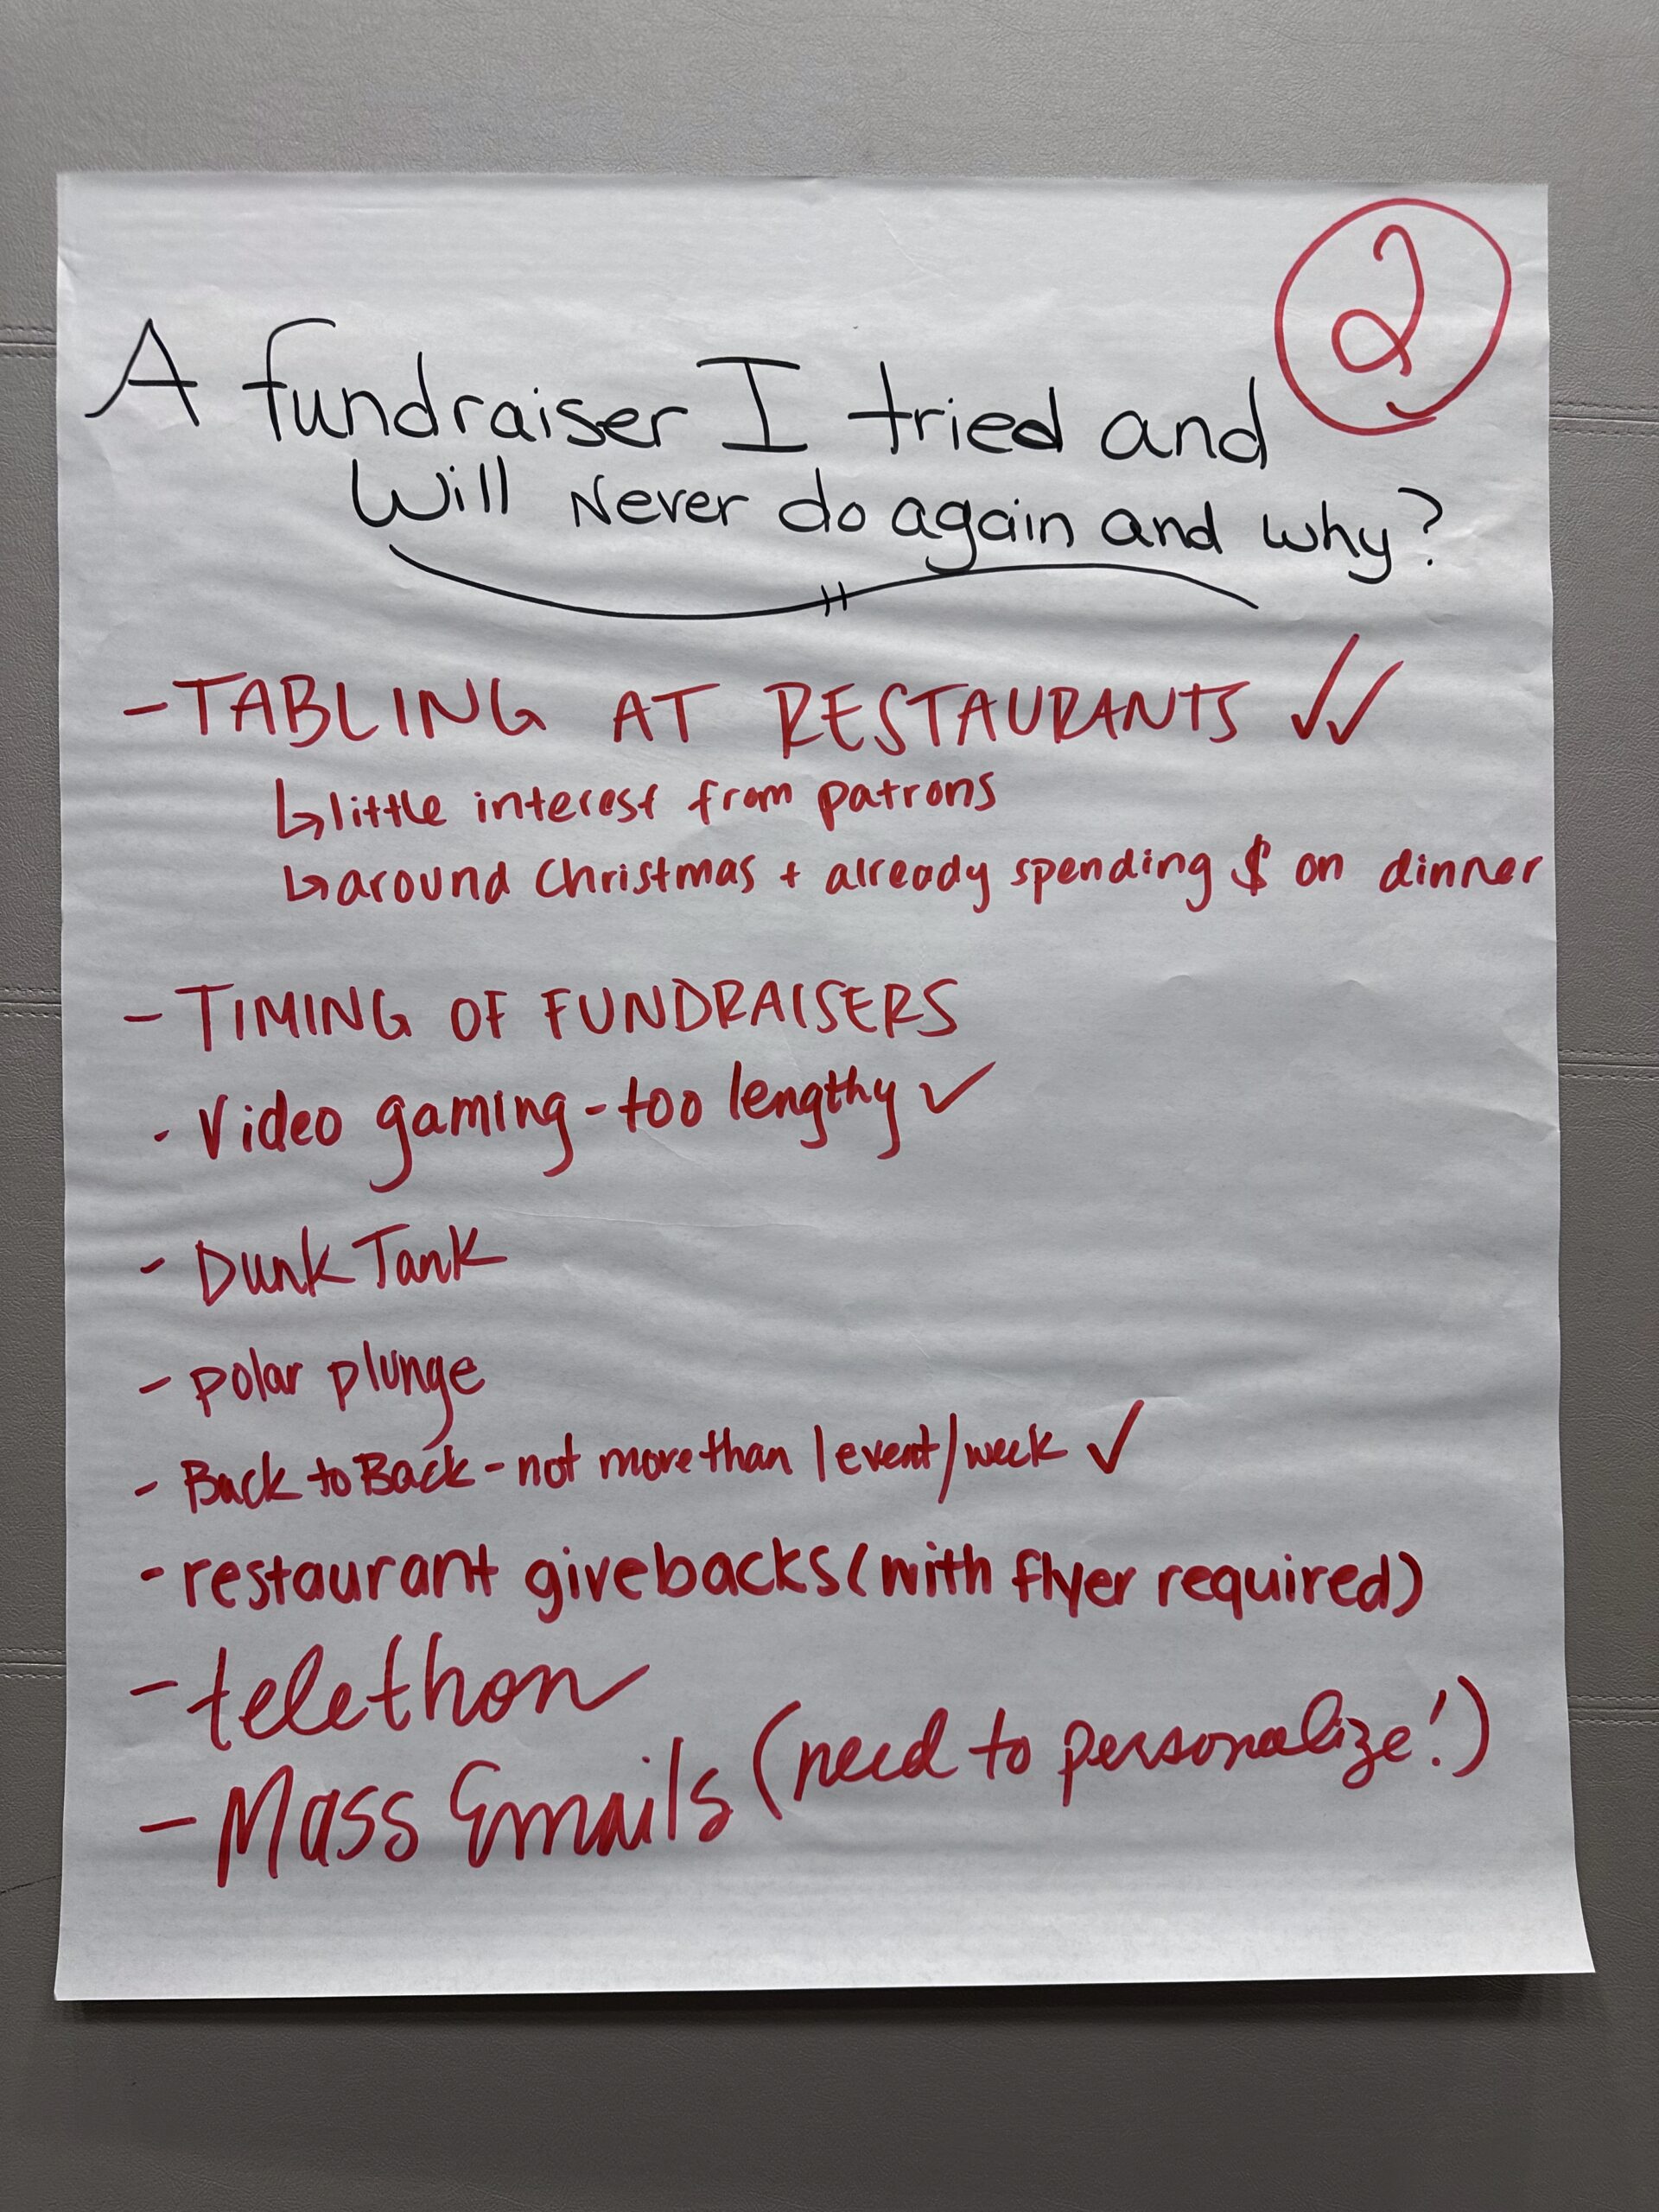 2
A fundraiser I tried and
Will Never do again and why?
- TABLING AT RESTAURANTS ✓✓
↳ little interest from patrons
↳ around Christmas + already spending $ on dinner
- TIMING OF FUNDRAISERS
· Video gaming - too lengthy ✓
- Dunk Tank
- polar plunge
- Back to Back - not more than 1 event/week ✓
- restaurant givebacks (with flyer required)
- telethon
- Mass Emails (need to personalize!)